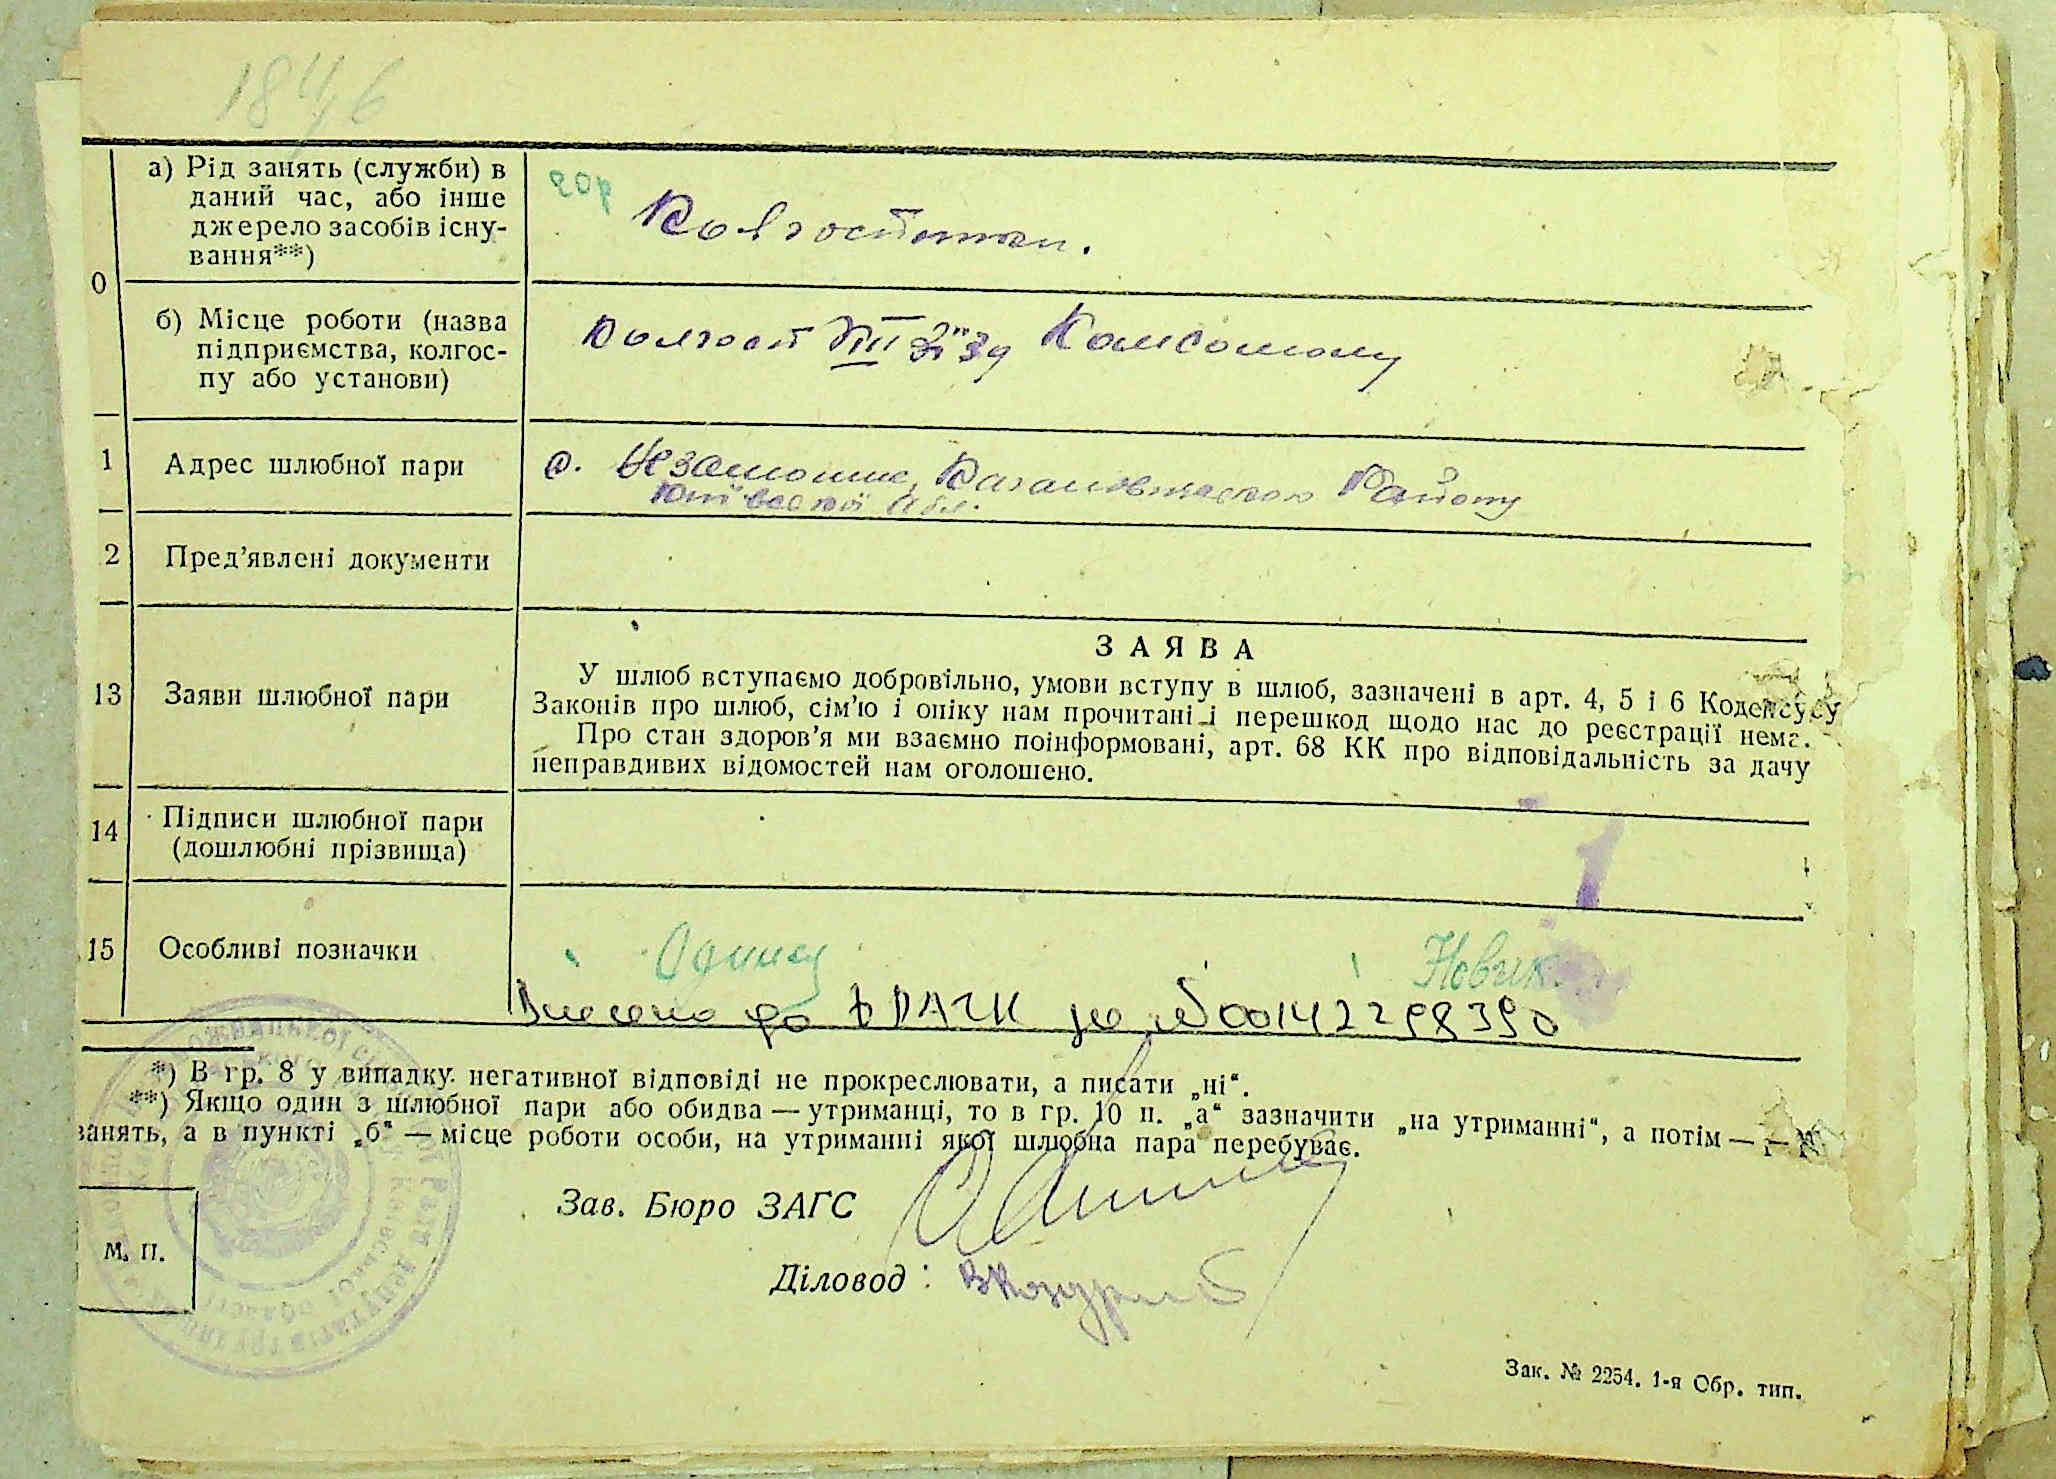 1846
а) Рід занять (служби) в
даний час, або інше
джерело засобів існу-
вання**)
20р
Колгоспники.
0
б) Місце роботи (назва
підприємства, колгос-
пу або установи)
Колгосп VIII З'їзду Комсомолу
1
Адрес шлюбної пари
с. Незаможне, Кагановического Району
Київської Обл.
2
Пред'явлені документи
13
Заяви шлюбної пари
ЗАЯВА
У шлюб вступаємо добровільно, умови вступу в шлюб, зазначені в арт. 4, 5 і 6 Кодексу
Законів про шлюб, сім'ю і опіку нам прочитані і перешкод щодо нас до реєстрації нема.
Про стан здоров'я ми взаємно поінформовані, арт. 68 КК про відповідальність за дачу
неправдивих відомостей нам оголошено.
14
Підписи шлюбної пари
(дошлюбні прізвища)
1
15
Особливі позначки
Одинец
Новик
Внесено до ДРАЦС за №00142298390
*) В гр. 8 у випадку негативної відповіді не прокреслювати, а писати „ні“.
**) Якщо один з шлюбної пари або обидва — утриманці, то в гр. 10 п. „а“ зазначити „на утриманні“, а потім —
занять, а в пункті „б“ — місце роботи особи, на утриманні якої шлюбна пара перебуває.
Зав. Бюро ЗАГС
М. П.
Діловод :
Зак. № 2254. 1-я Обр. тип.